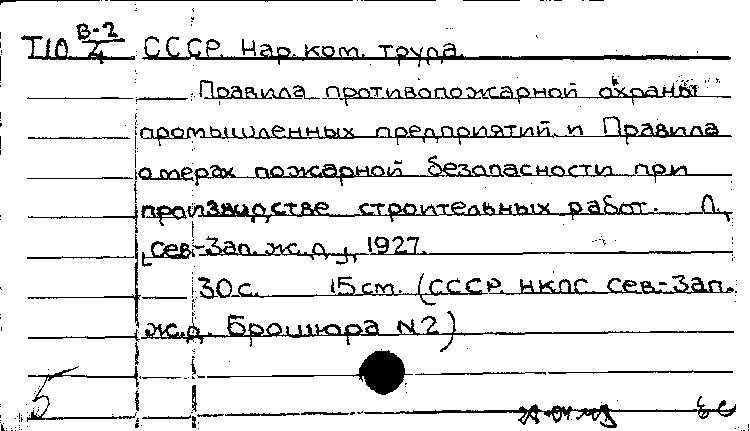 Т10 В-2/4 СССР. Нар. ком. труда.
Правила противопожарной охраны
промышленных предприятий и Правила
о мерах пожарной безопасности при
производстве строительных работ. Л.,
[Сев-Зап. ж. д.], 1927.
30 с. 15 см. (СССР. НКПС. Сев.-Зап.
ж.д. Брошюра N2)
5